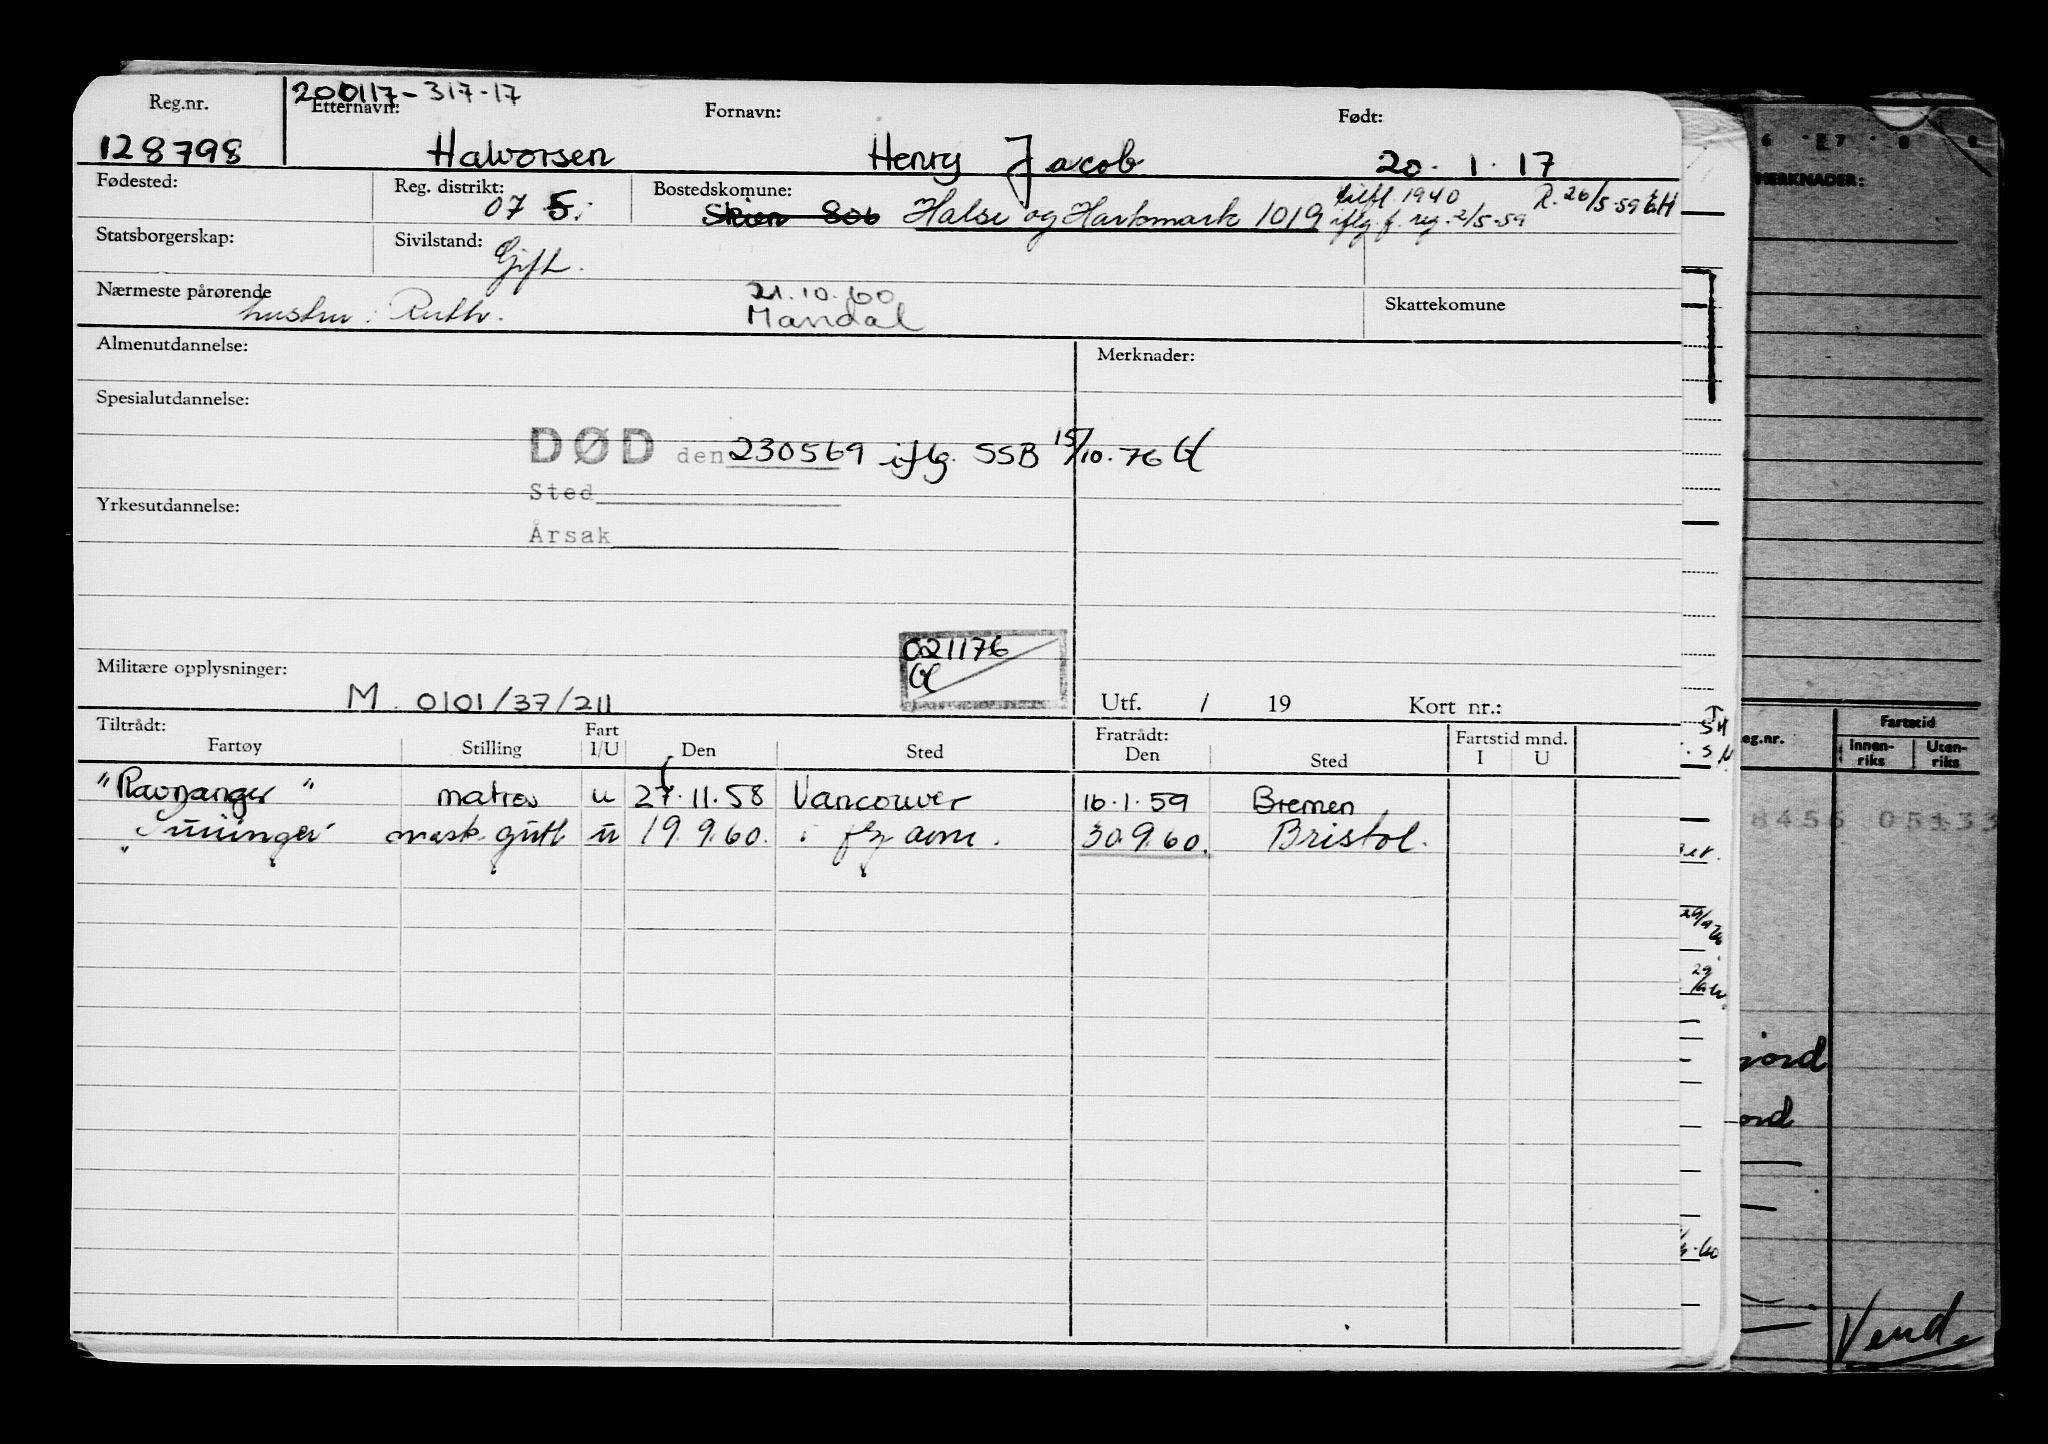 200117-317-17
Reg.nr. Etternavn: Fornavn: Født:
128798 Halvorsen Henry Jacob 20. 1. 17
Fødested: Reg. distrikt: 07 5. Bostedskomune: Skien 806 Halse og Harkmark 1019 tilfl. 1940 R. 26/5-59 EH
iflg. f. reg. 2/5-59
Statsborgerskap: Sivilstand: Gift.
Nærmeste pårørende hustru: Ruth. 21.10.60 Skattekomune
Mandal
Almenutdannelse: Merknader:
Spesialutdannelse:
DØD den 230569 iflg. SSB 15/10.76
Sted
Yrkesutdannelse:
Årsak
021176
Militære opplysninger:
M. 0101/37/211 Utf. / 19 Kort nr.:
Tiltrådt: Fratrådt: Fartstid mnd.
Fartøy Stilling Fart I/U Den Sted Den Sted I U
"Ravnanger" matros u 27.11.58 Vancouver 16.1.59 Bremen
mask. gutt u 19.9.60. i flg avm. 30.9.60. Bristol.
MERKNADER:
eg.nr. Fartstid
Innen-riks Uten-riks
8456 05133
jord
ord
Vend